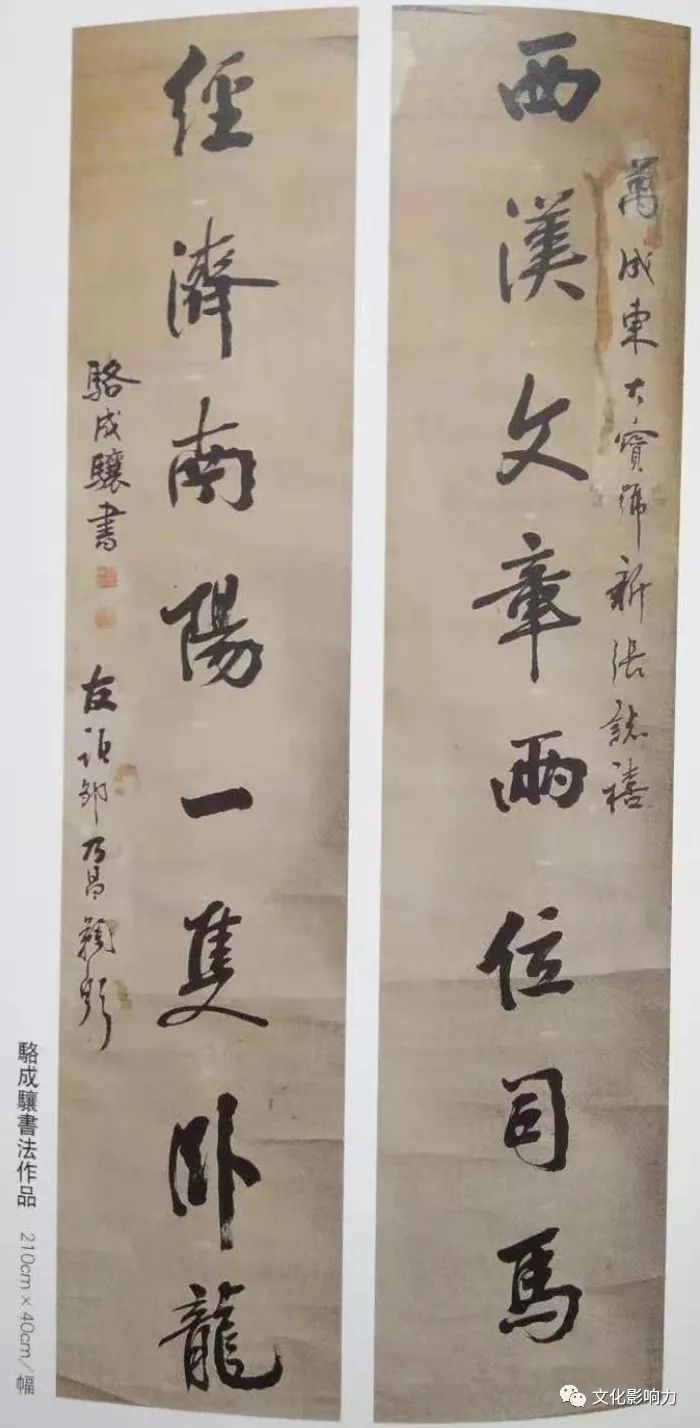 萬成東大寶號新張誌禧
西漢文章兩位司馬
經濟南陽一隻卧龍
駱成驤書
友 乃昌鞠躬
駱成驤書法作品 210cm×40cm/幅
文化影响力